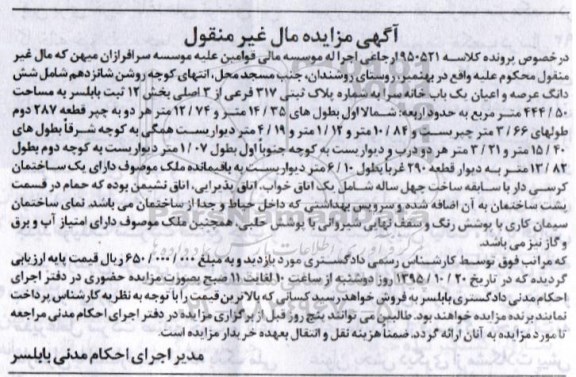 آگهی مزایده مال غیر منقول
درخصوص پرونده کلاسه ۹۵۰۵۲۱ارجاعی اجرا له موسسه مالی قوامین علیه موسسه سرافرازان میهن که مال غیر
منقول محکوم علیه واقع در بهنمیر، روستای روشندان، جنب مسجد محل، انتهای کوچه روشن شانزدهم شامل شش
دانگ عرصه و اعیان یک باب خانه سرا به شماره پلاک ثبتی ۳۱۷ فرعی از ۳ اصلی بخش ۱۲ ثبت بابلسر به مساحت
۴۴۴/۵۰ متر مربع به حدود اربعه: شمالا اول بطول های ۱۴/۳۵ متر و ۱۲/۷۴ متر هر دو به چپر قطعه ۲۸۷ دوم
طولهای ۳/۶۶ متر چپریست و ۱۰/۸۴ متر و ۱/۱۲ متر و ۴/۱۹ متر دیواریست همگی به کوچه شرقاً بطول های
۱۵/۴۰ متر و ۳/۲۱ متر هر دو درب و دیواریست به کوچه جنوباً اول بطول ۱/۰۷ متر دیواریست به کوچه دوم بطول
۱۳/۸۲ متر به دیوار قطعه ۲۹۰ غرباً بطول ۶/۱۰ متر دیواریست به باقیمانده ملک موصوف دارای یک ساختمان
کرسی دار با سابقه ساخت چهل ساله شامل یک اتاق خواب، اتاق پذیرایی، اتاق نشیمن بوده که حمام در قسمت
پشت ساختمان به آن اضافه شده و سرویس بهداشتی که داخل حیاط و جدا از ساختمان می باشد. نمای ساختمان
سیمان کاری با پوشش رنگ و سقف نهایی شیروانی با پوشش حلبی، همچنین ملک موصوف دارای امتیاز آب و برق
و گاز نیز می باشد.
که مراتب فوق توسط کارشناس رسمی دادگستری مورد بازدید و به مبلغ ۶۵۰/۰۰۰/۰۰۰ ریال قیمت پایه ارزیابی
گردیده که در تاریخ ۱۳۹۵/۱۰/۲۰ روز دوشنبه از ساعت ۱۰ لغایت ۱۱ صبح بصورت مزایده حضوری در دفتر اجرای
احکام مدنی دادگستری بابلسر به فروش خواهد رسید کسانی که بالاترین قیمت را با توجه به نظریه کارشناس پرداخت
نمایند برنده مزایده خواهند بود. طالبین می توانند پنج روز قبل از برگزاری مزایده در دفتر اجرای احکام مدنی مراجعه
تا مورد مزایده به آنان ارائه گردد. ضمناً هزینه نقل و انتقال بعهده خریدار مزایده است.
مدیر اجرای احکام مدنی بابلسر
ParsNamadData